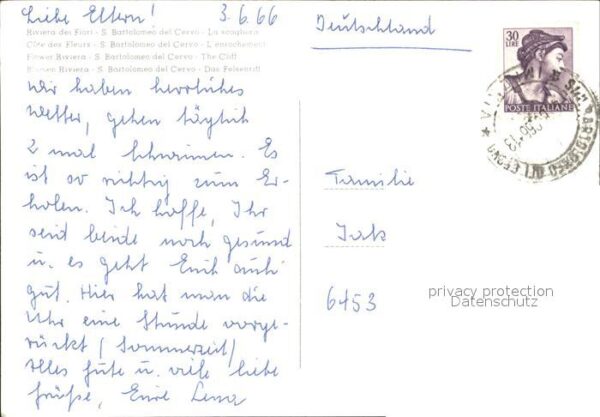 Liebe Eltern! 3.6.66
Riviera dei Fiori - S. Bartolomeo del Cervo - La scogliera
Côte des Fleurs - S. Bartolomeo del Cervo - L'enrochement
Flower Riviera - S. Bartolomeo del Cervo - The Cliff
Blumen Riviera - S. Bartolomeo del Cervo - Das Felsenriff
wir haben herrliches
Wetter, gehen täglich
2 mal schwimmen. Es
ist so richtig zum Er-
holen. Ich hoffe, Ihr
seid beide noch gesund
u. es geht Euch auch
gut. Hier hat man die
Uhr eine Stunde vorge-
rückt (Sommerzeit)
Alles Gute u. viele liebe
Grüße, Eure Lena
Deutschland
30
LIRE
POSTE ITALIANE
Familie
6453
privacy protection
Datenschutz